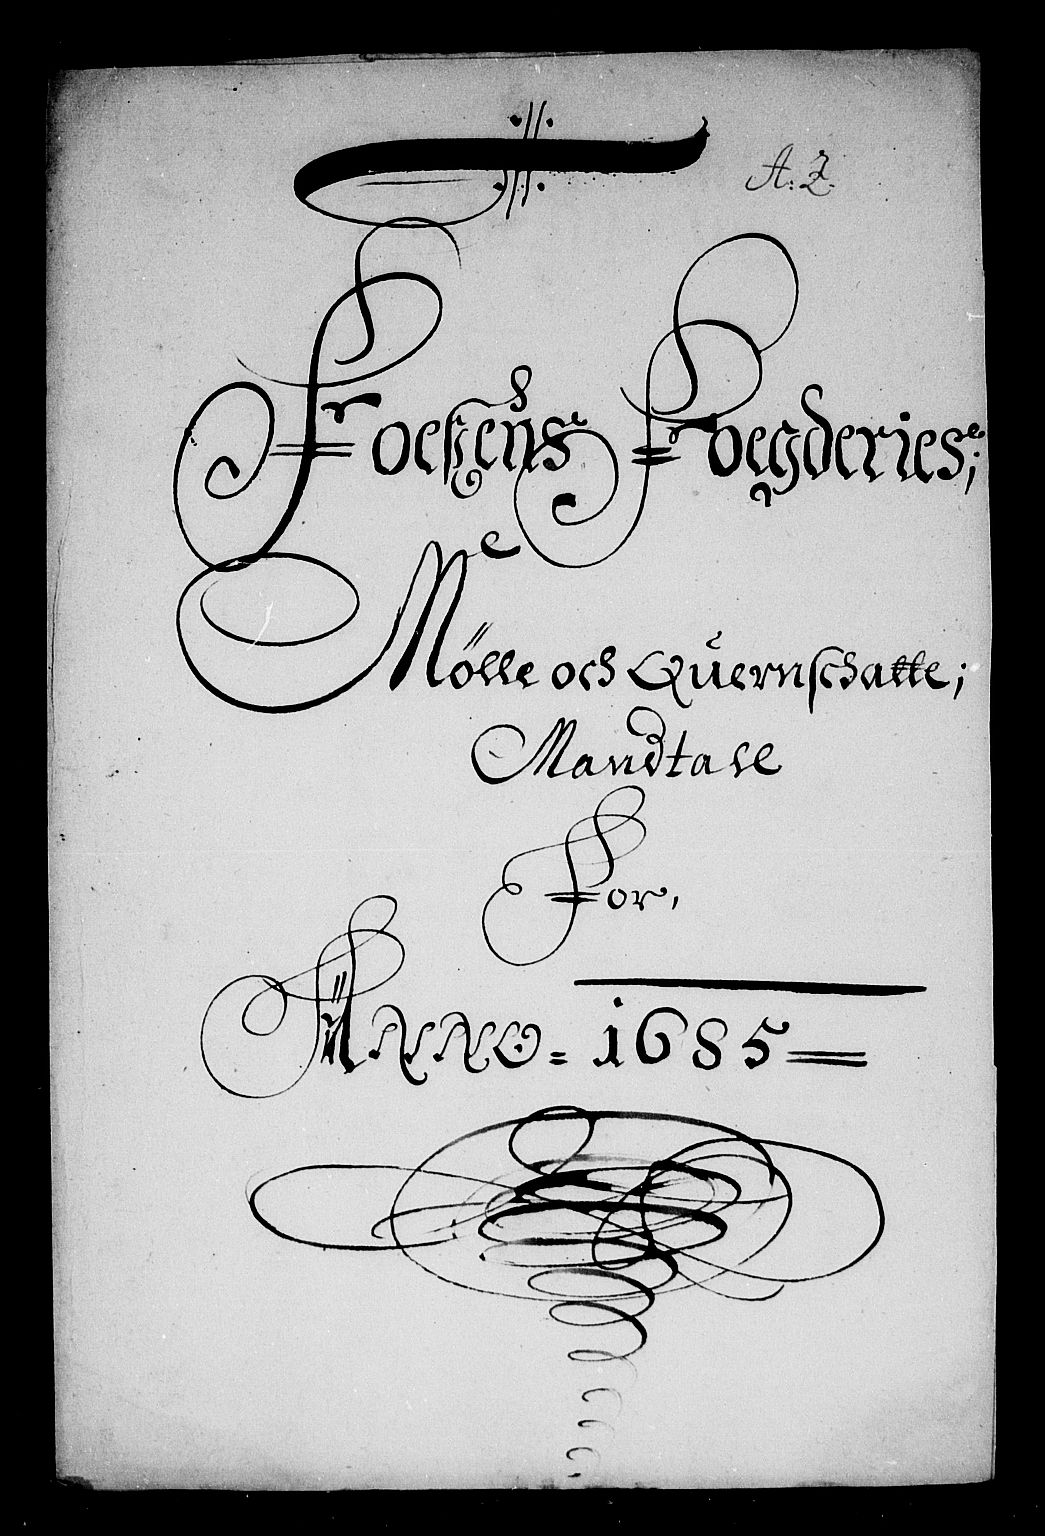 A: 2.
Foesens Foegderies;
Mölle och Quernschatte;
Mandtall
For,
ANNO = 1685 =